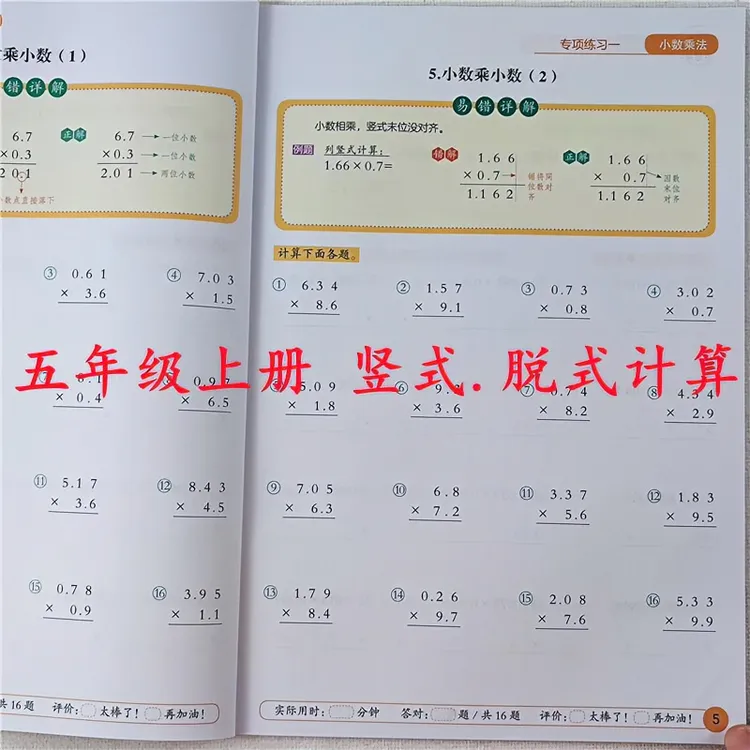 乘小数（1）
错详解
6.7
×0.3
201
小数点直接落下
正解
6.7 → 一位小数
×0.3 → 一位小数
2.01 → 两位小数
③ 0.61
× 3.6
④ 7.03
× 1.5
× 0.4
× 6.5
⑪ 5.17
× 3.6
⑫ 8.43
× 4.5
⑮ 0.78
× 0.9
⑯ 3.95
× 1.1
共16题 评价： 太棒了！ 再加油！
专项练习一 小数乘法
5.小数乘小数（2）
易错详解
小数相乘，竖式末位没对齐。
例题 列竖式计算：
1.66×0.7=
错解
1.66
×0.7
1.162
错将同
位数对
齐
正解
1.66
× 0.7
1.162
因数
末位
对齐
计算下面各题。
① 6.34
× 8.6
② 1.57
× 9.1
③ 0.73
× 0.8
④ 3.02
× 0.7
五年级上册 竖式.脱式计算
5.09
× 1.8
⑥
× 3.6
0.74
× 8.2
⑧ 4.34
× 2.9
⑨ 7.05
× 6.3
⑩ 6.8
× 7.2
⑪ 3.37
× 5.6
⑫ 1.83
× 9.5
⑬ 1.79
× 8.4
⑭ 0.26
× 9.7
⑮ 2.08
× 7.6
⑯ 5.33
× 9.9
实际用时： 分钟 答对： 题/共16题 评价： 太棒了！ 再加油！ 5